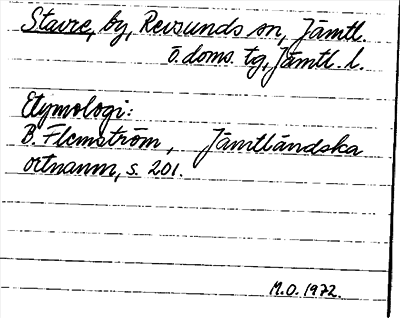 Stavre, by, Revsunds sn, Jämtl.
ö. doms. tg, Jämtl. l.
Etymologi:
B. Flemström, Jämtländska
ortnamn, s. 201.
M.O. 1972.